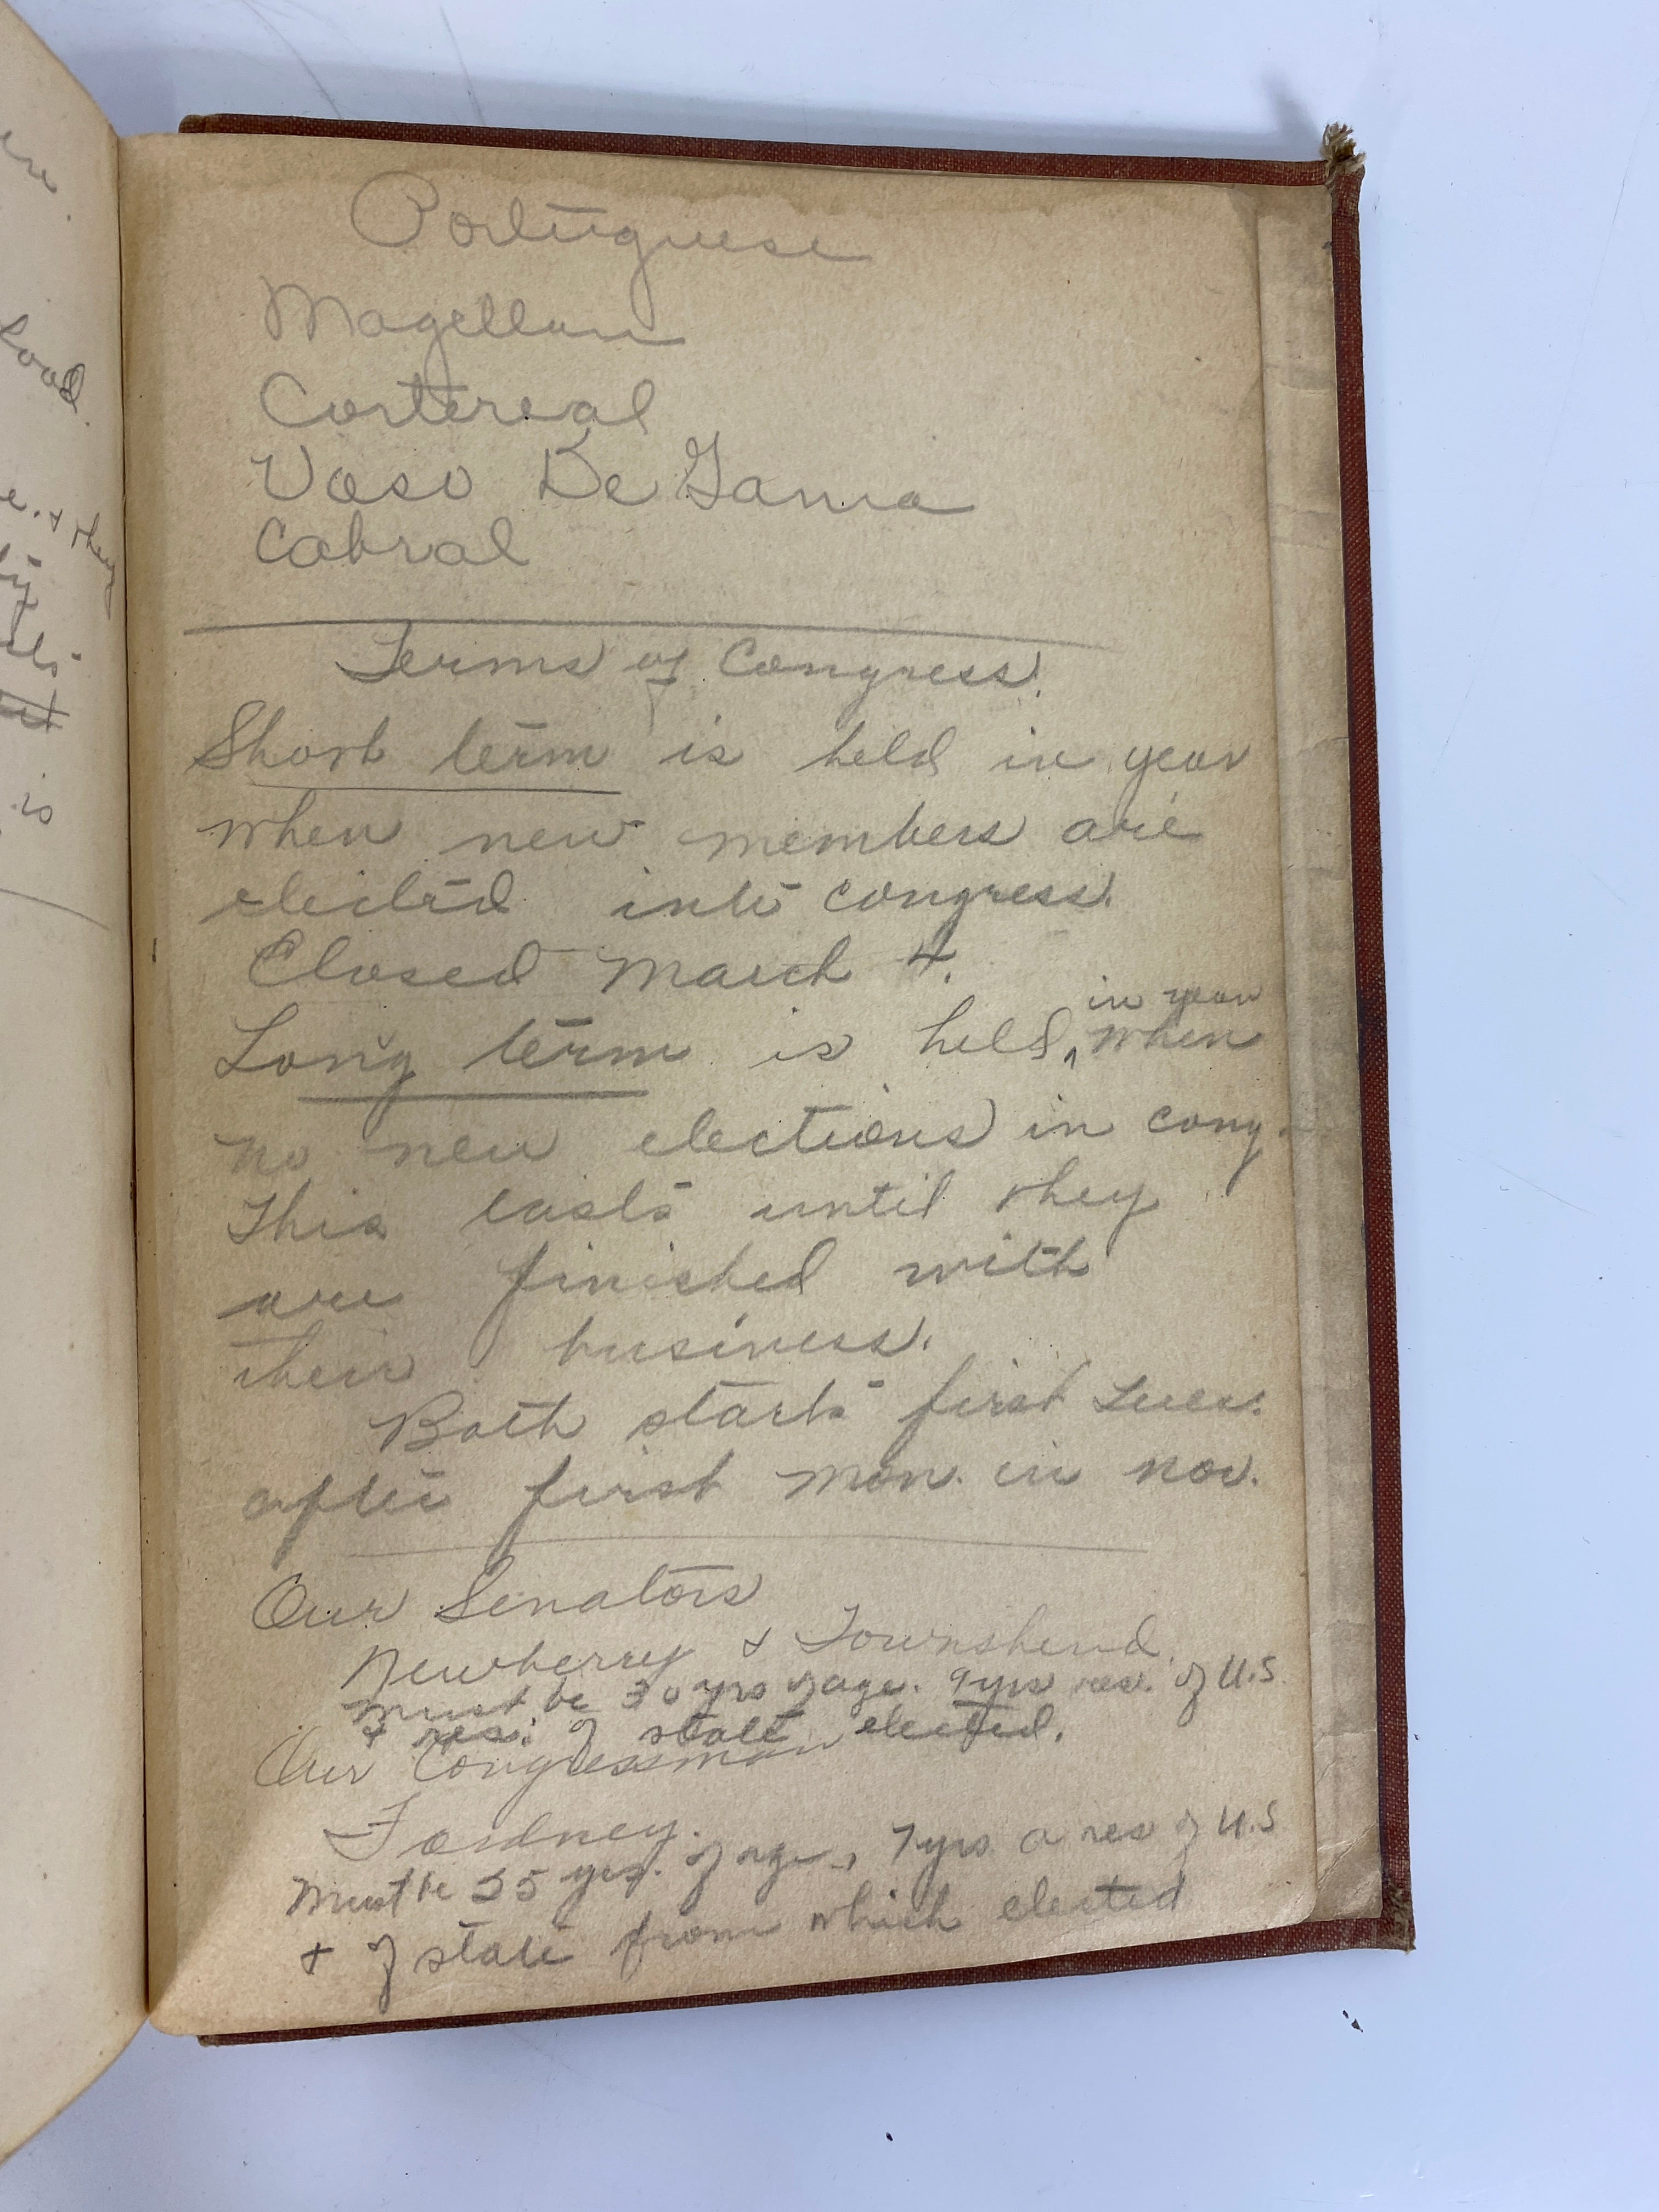 Portuguese
Magellan
Cortereal
Vaso De Gama
Cabral
Terms of Congress.
Short term is held in year
when new members are
elected into congress.
Closed March 4.
in year
Long term is held ^ when
no new elections in cong.
This lasts until they
are finished with
their business.
Both starts first Tues.
after first Mon. in nov.
Our Senators
Newberry & Townshend.
Must be 30 yrs of age. 9 yrs res. of U.S
& res. of state elected.
Our Congressman
Fordney.
Must be 25 yrs. of age, 7 yrs a res of U.S
& of state from which elected
ure
Good.
e. & they
is